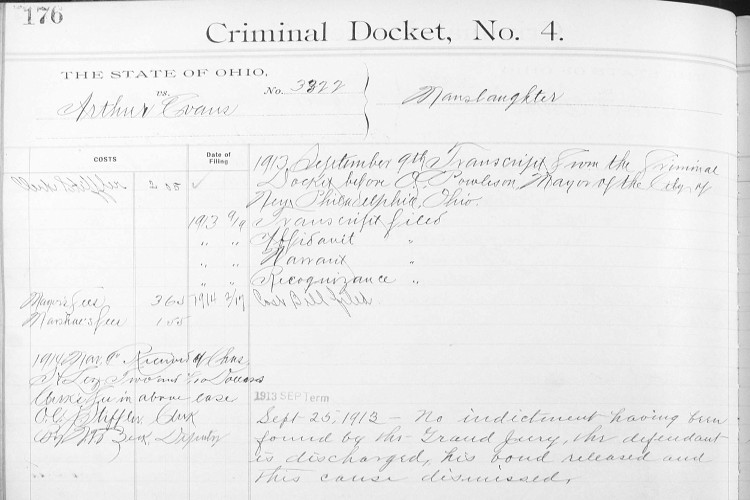 176
Criminal Docket, No. 4.
THE STATE OF OHIO,
vs.
No. 3322
Arthur Evans
Manslaughter
COSTS
Date of
Filing
1913 September 9th Transcript from the Criminal
Docket before Mayor of the City of
New Philadelphia, Ohio.
Clerk 2 00 ✓
1913 9/9 Transcript filed
" " Affidavit "
" " Warrant "
" " Recognizance "
Mayor's fees 3 65 1914 2/17 Cost Bill filed
Marshal's fees 1 55
1914 Mar. Received of Chas.
Two and Dollars
Clerks fee in above case
Clerk
By Deputy
1913 SEP Term
Sept 25, 1913 - No indictment having been
found by the Grand Jury, the defendant
is discharged, his bond released and
this cause dismissed.